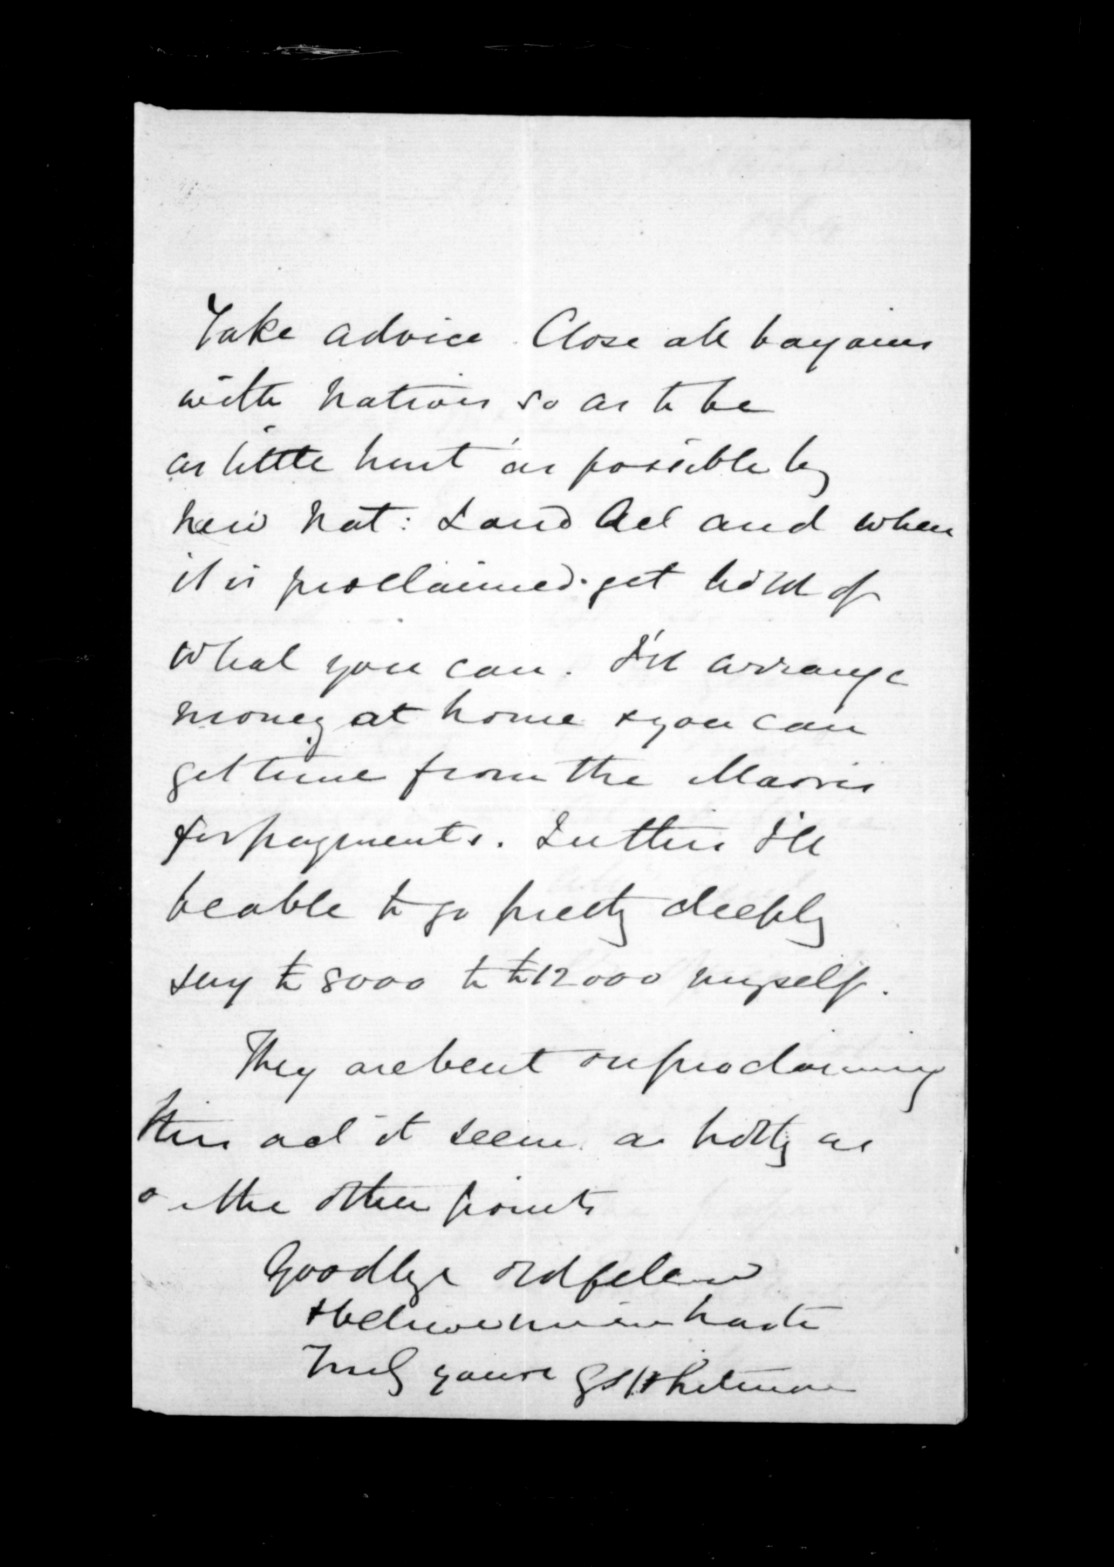 Take advice. Close all bargains
with Natives so as to be
as little hurt as possible by
new Nat: Land Act and when
it is proclaimed get hold of
what you can. I'll arrange
money at home & you can
get time from the Maoris
for payments. In this I'll
be able to go pretty deeply
say to 8000 to 12000 myself.
They are bent on proclaiming
this act it seems as hotly as
on the other points
Goodbye old fellow
& believe me in haste
Truly yours GS Whitmore